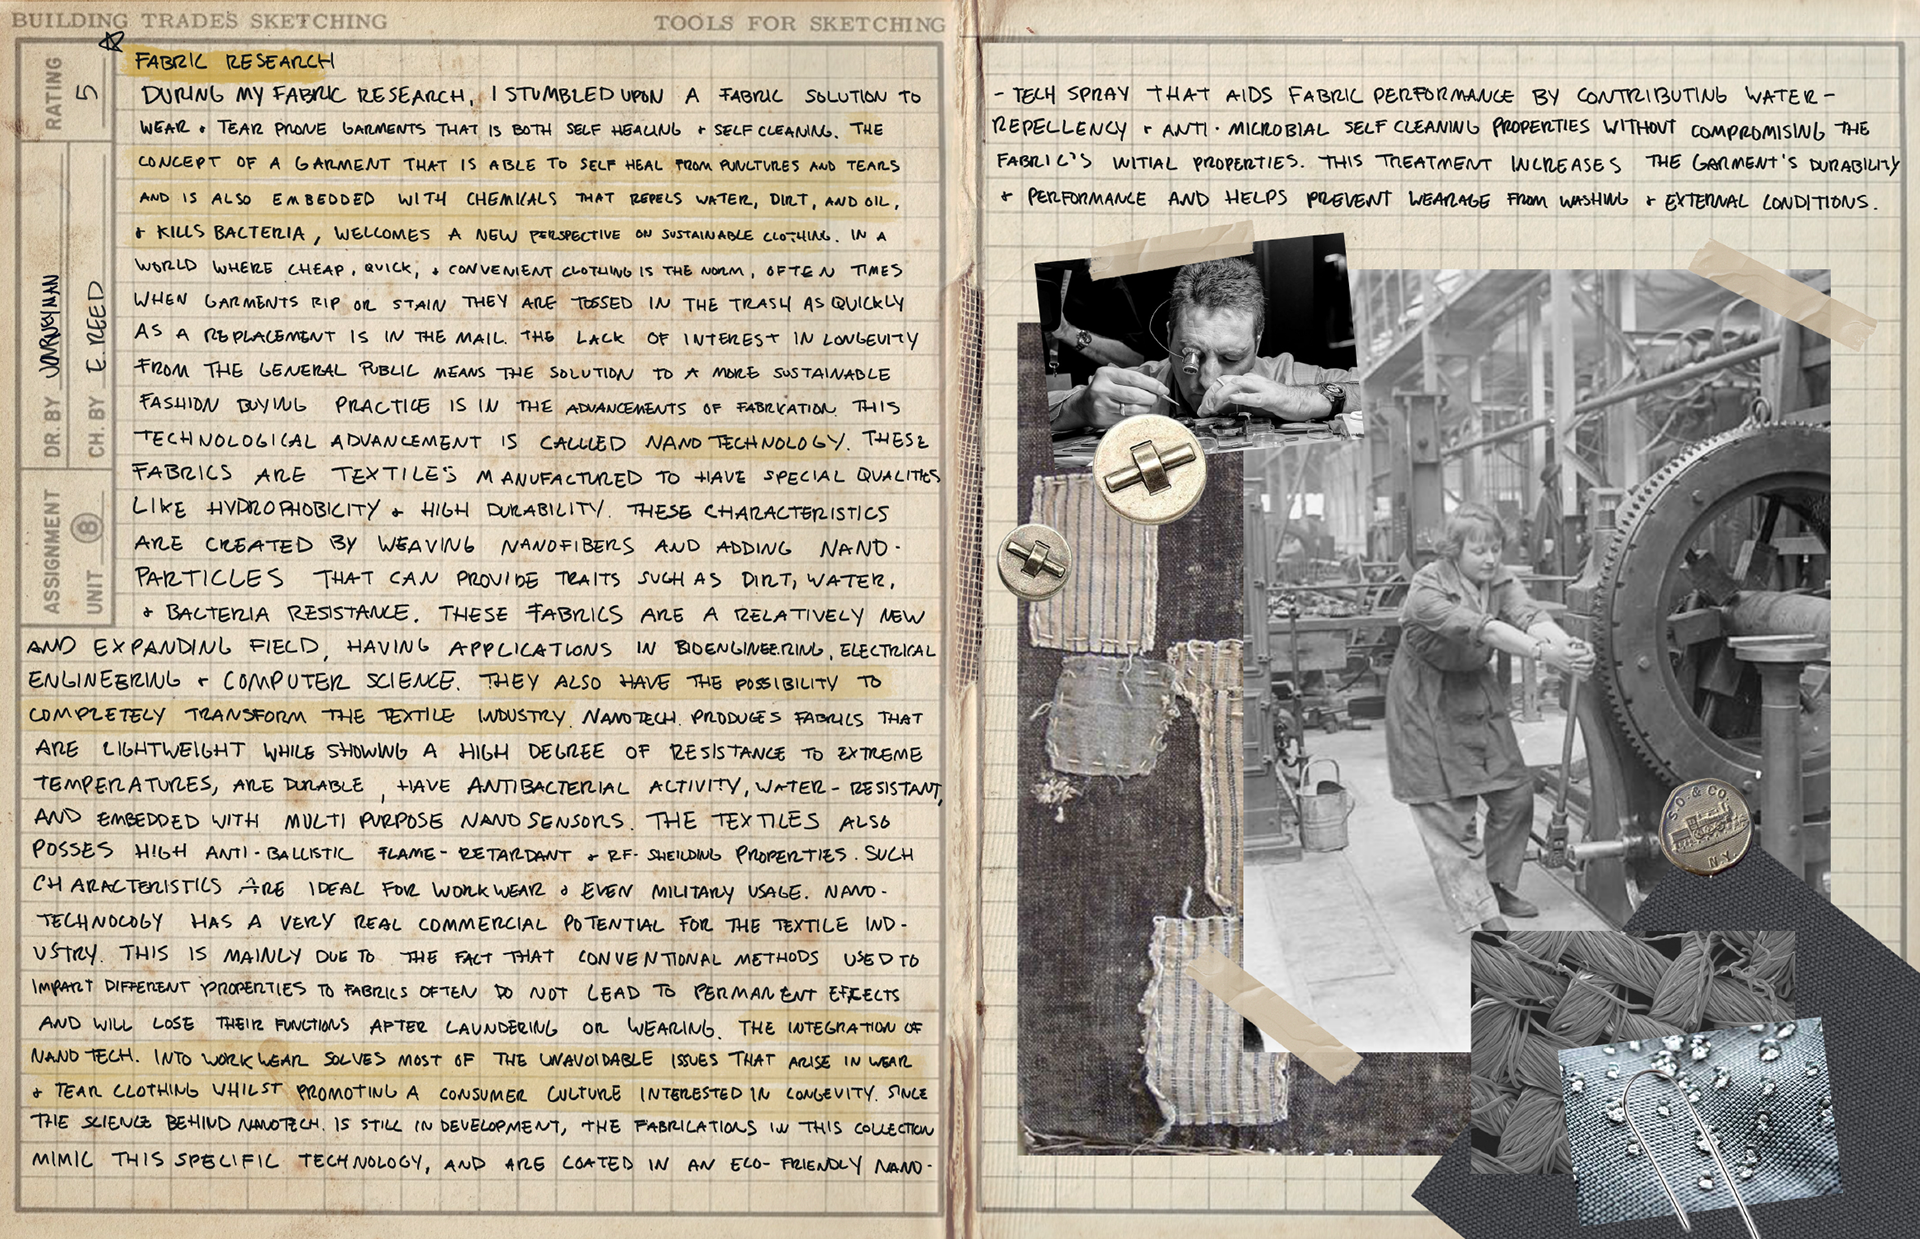 BUILDING TRADES SKETCHING
TOOLS FOR SKETCHING
RATING 5
DR. BY JOURNEYMAN
CH. BY E. REED
ASSIGNMENT
UNIT 8
FABRIC RESEARCH
DURING MY FABRIC RESEARCH, I STUMBLED UPON A FABRIC SOLUTION TO
WEAR & TEAR PRONE GARMENTS THAT IS BOTH SELF HEALING & SELF CLEANING. THE
CONCEPT OF A GARMENT THAT IS ABLE TO SELF HEAL FROM PUNCTURES AND TEARS
AND IS ALSO EMBEDDED WITH CHEMICALS THAT REPELS WATER, DIRT, AND OIL,
& KILLS BACTERIA, WELCOMES A NEW PERSPECTIVE ON SUSTAINABLE CLOTHING. IN A
WORLD WHERE CHEAP, QUICK, & CONVENIENT CLOTHING IS THE NORM, OFTEN TIMES
WHEN GARMENTS RIP OR STAIN THEY ARE TOSSED IN THE TRASH AS QUICKLY
AS A REPLACEMENT IS IN THE MAIL. THE LACK OF INTEREST IN LONGEVITY
FROM THE GENERAL PUBLIC MEANS THE SOLUTION TO A MORE SUSTAINABLE
FASHION BUYING PRACTICE IS IN THE ADVANCEMENTS OF FABRICATION. THIS
TECHNOLOGICAL ADVANCEMENT IS CALLLED NANO TECHNOLOGY. THESE
FABRICS ARE TEXTILE'S MANUFACTURED TO HAVE SPECIAL QUALITIES
LIKE HYDROPHOBICITY & HIGH DURABILITY. THESE CHARACTERISTICS
ARE CREATED BY WEAVING NANOFIBERS AND ADDING NANO-
PARTICLES THAT CAN PROVIDE TRAITS SUCH AS DIRT, WATER,
& BACTERIA RESISTANCE. THESE FABRICS ARE A RELATIVELY NEW
AND EXPANDING FIELD, HAVING APPLICATIONS IN BIOENGINEERING, ELECTRICAL
ENGINEERING & COMPUTER SCIENCE. THEY ALSO HAVE THE POSSIBILITY TO
COMPLETELY TRANSFORM THE TEXTILE INDUSTRY. NANOTECH. PRODUCES FABRICS THAT
ARE LIGHTWEIGHT WHILE SHOWING A HIGH DEGREE OF RESISTANCE TO EXTREME
TEMPERATURES, ARE DURABLE, HAVE ANTIBACTERIAL ACTIVITY, WATER-RESISTANT,
AND EMBEDDED WITH MULTI PURPOSE NANO SENSORS. THE TEXTILES ALSO
POSSES HIGH ANTI-BALLISTIC FLAME-RETARDANT & RF-SHEILDING PROPERTIES. SUCH
CHARACTERISTICS ARE IDEAL FOR WORKWEAR & EVEN MILITARY USAGE. NANO-
TECHNOLOGY HAS A VERY REAL COMMERCIAL POTENTIAL FOR THE TEXTILE IND-
USTRY. THIS IS MAINLY DUE TO THE FACT THAT CONVENTIONAL METHODS USED TO
IMPART DIFFERENT PROPERTIES TO FABRICS OFTEN DO NOT LEAD TO PERMANENT EFFECTS
AND WILL LOSE THEIR FUNCTIONS AFTER LAUNDERING OR WEARING. THE INTEGRATION OF
NANO TECH. INTO WORKWEAR SOLVES MOST OF THE UNAVOIDABLE ISSUES THAT ARISE IN WEAR
& TEAR CLOTHING WHILST PROMOTING A CONSUMER CULTURE INTERESTED IN LONGEVITY. SINCE
THE SCIENCE BEHIND NANOTECH. IS STILL IN DEVELOPMENT, THE FABRICATIONS IN THIS COLLECTION
MIMIC THIS SPECIFIC TECHNOLOGY, AND ARE COATED IN AN ECO-FRIENDLY NANO-
- TECH SPRAY THAT AIDS FABRIC PERFORMANCE BY CONTRIBUTING WATER-
REPELLENCY & ANTI-MICROBIAL SELF CLEANING PROPERTIES WITHOUT COMPROMISING THE
FABRIC'S INITIAL PROPERTIES. THIS TREATMENT INCREASES THE GARMENT'S DURABILITY
& PERFORMANCE AND HELPS PREVENT WEARAGE FROM WASHING & EXTERNAL CONDITIONS.
S.O. & CO.
N.Y.